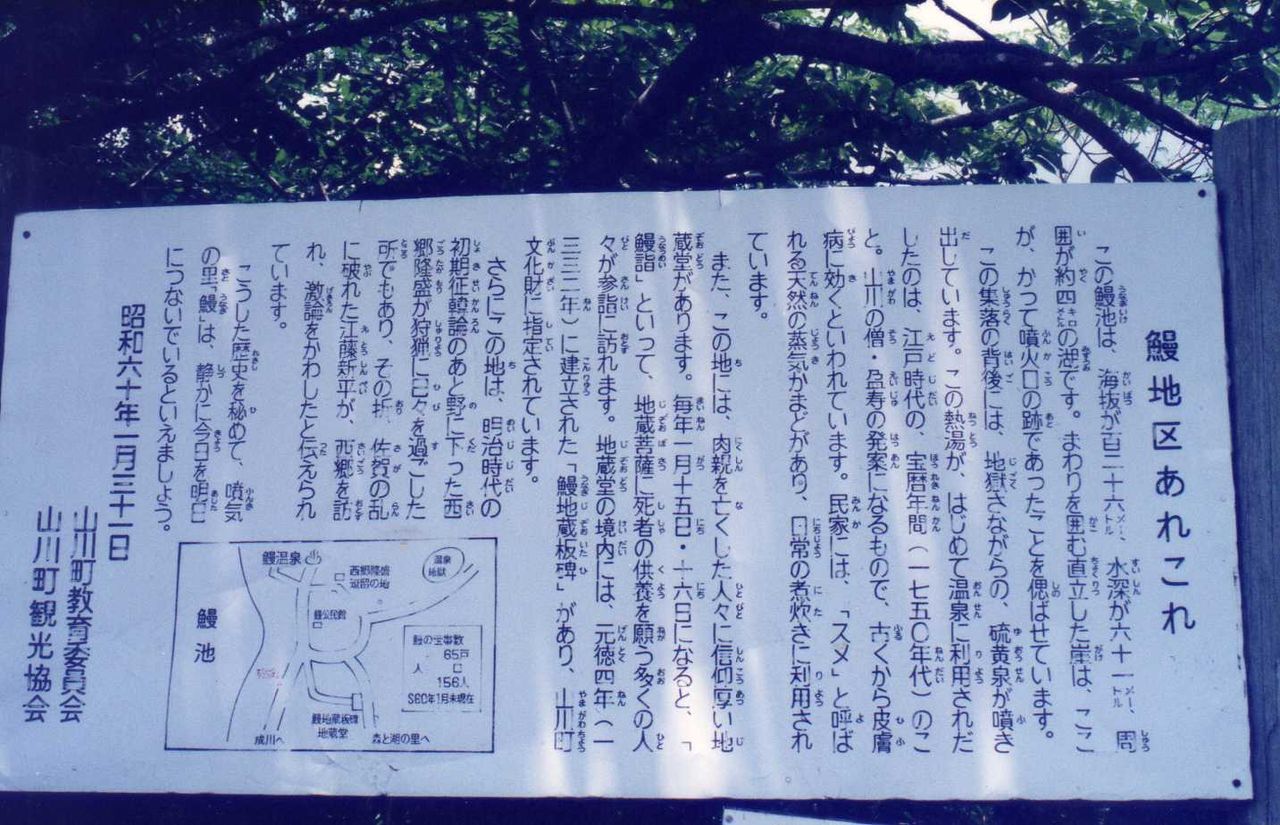 鰻地区あれこれ
この鰻池は、海抜が百二十六メートル、水深が六十一メートル、周
囲が約四キロメートルの湖です。まわりを囲む直立した崖は、ここ
が、かつて噴火口の跡であったことを偲ばせています。
この集落の背後には、地獄さながらの、硫黄泉が噴き
出しています。この熱湯が、はじめて温泉に利用されだ
したのは、江戸時代の、宝暦年間(一七五〇年代)のこ
と。山川の僧・盈寿の発案になるもので、古くから皮膚
病に効くといわれています。民家には、「スメ」と呼ば
れる天然の蒸気かまどがあり、日常の煮炊きに利用され
ています。
また、この地には、肉親を亡くした人々に信仰厚い地
蔵堂があります。毎年一月十五日・十六日になると、「
鰻詣」といって、地蔵菩薩に死者の供養を願う多くの人
々が参詣に訪れます。地蔵堂の境内には、元徳四年(一
三三二年)に建立された「鰻地蔵板碑」があり、山川町
文化財に指定されています。
さらにこの地は、明治時代の
初期征韓論のあと野に下った西
郷隆盛が狩猟に日々を過ごした
所でもあり、その折、佐賀の乱
に破れた江藤新平が、西郷を訪
れ、激論をかわしたと伝えられ
ています。
こうした歴史を秘めて、噴気
の里「鰻」は、静かに今日を明日
につないでいるといえましょう。
昭和六十年一月三十一日
山川町教育委員会
山川町観光協会
鰻温泉
西郷隆盛
逗留の地
温泉
地獄
鰻公民館
鰻池
鰻の世帯数
65戸
人口
156人
S60年1月末現在
鰻地蔵板碑
地蔵堂
成川へ
森と湖の里へ